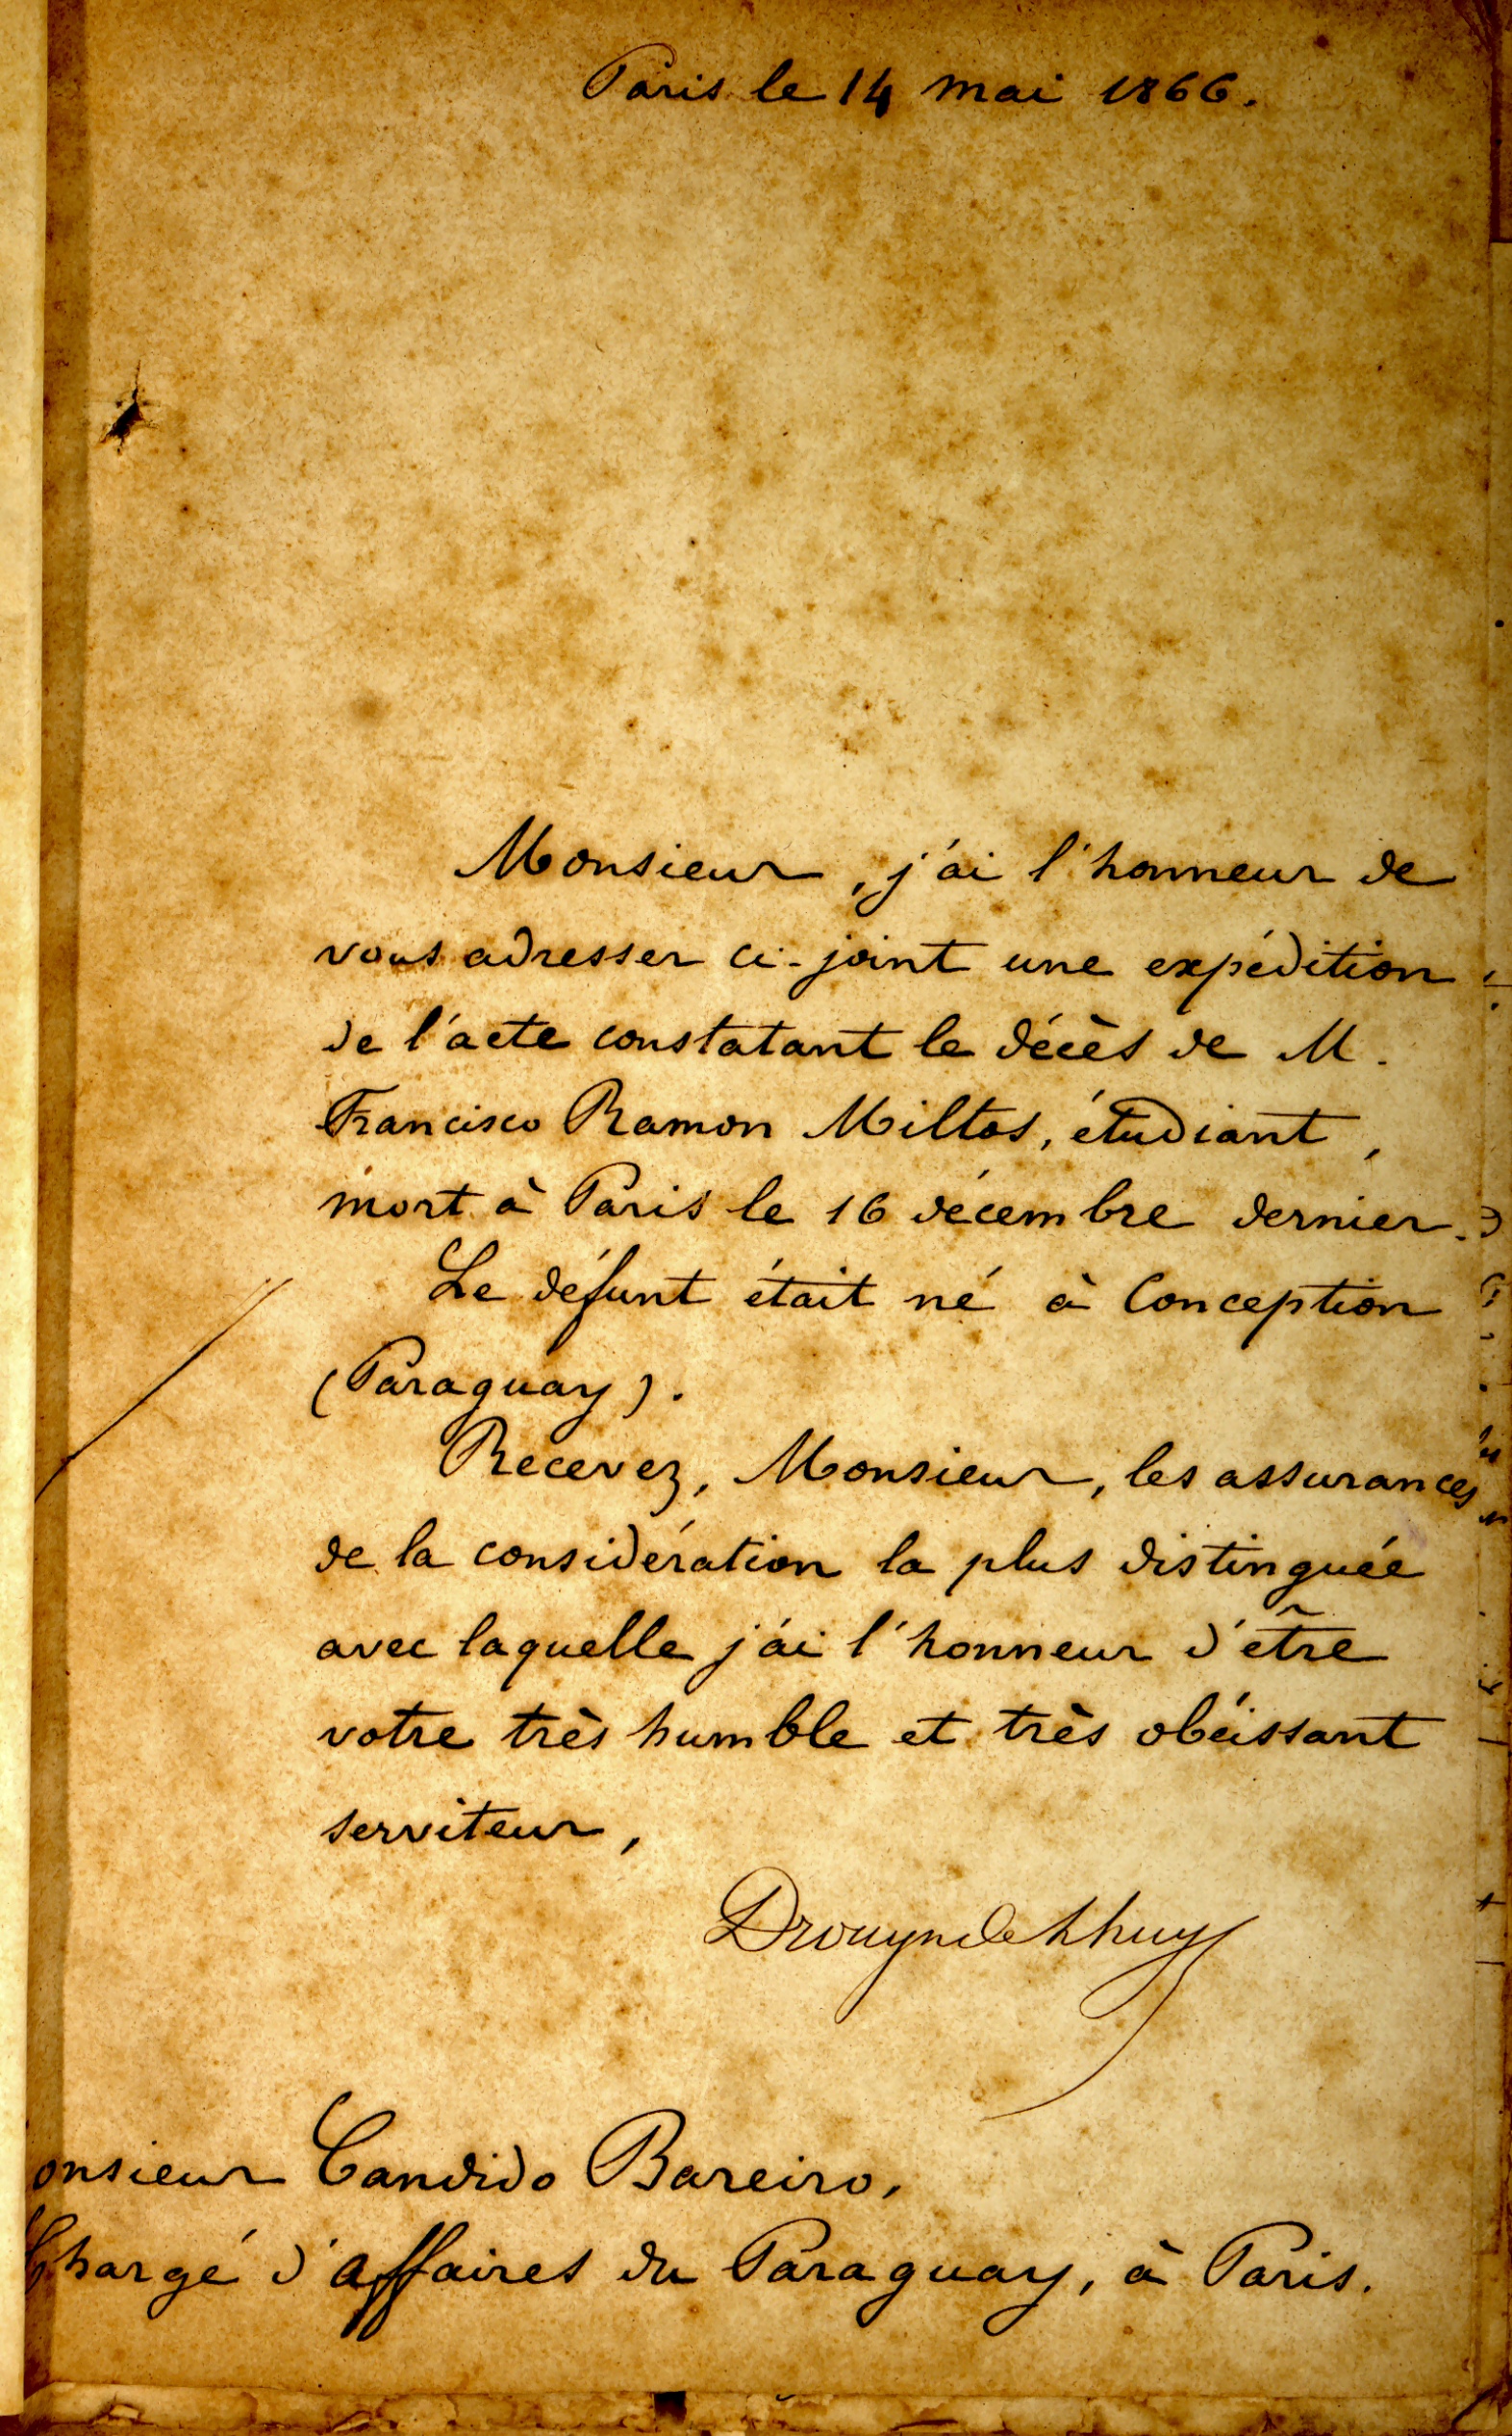 Paris le 14 mai 1866.
Monsieur, j'ai l'honneur de
vous adresser ci-joint une expédition
de l'acte constatant le décès de M.
Francisco Ramon Miltos, étudiant,
mort à Paris le 16 décembre dernier.
Le défunt était né à Conception
(Paraguay).
Recevez, Monsieur, les assurances
de la considération la plus distinguée
avec laquelle j'ai l'honneur d'être
votre très humble et très obéissant
serviteur,
Drouyn de Lhuys
onsieur Candido Bareiro,
Chargé d'affaires du Paraguay, à Paris.